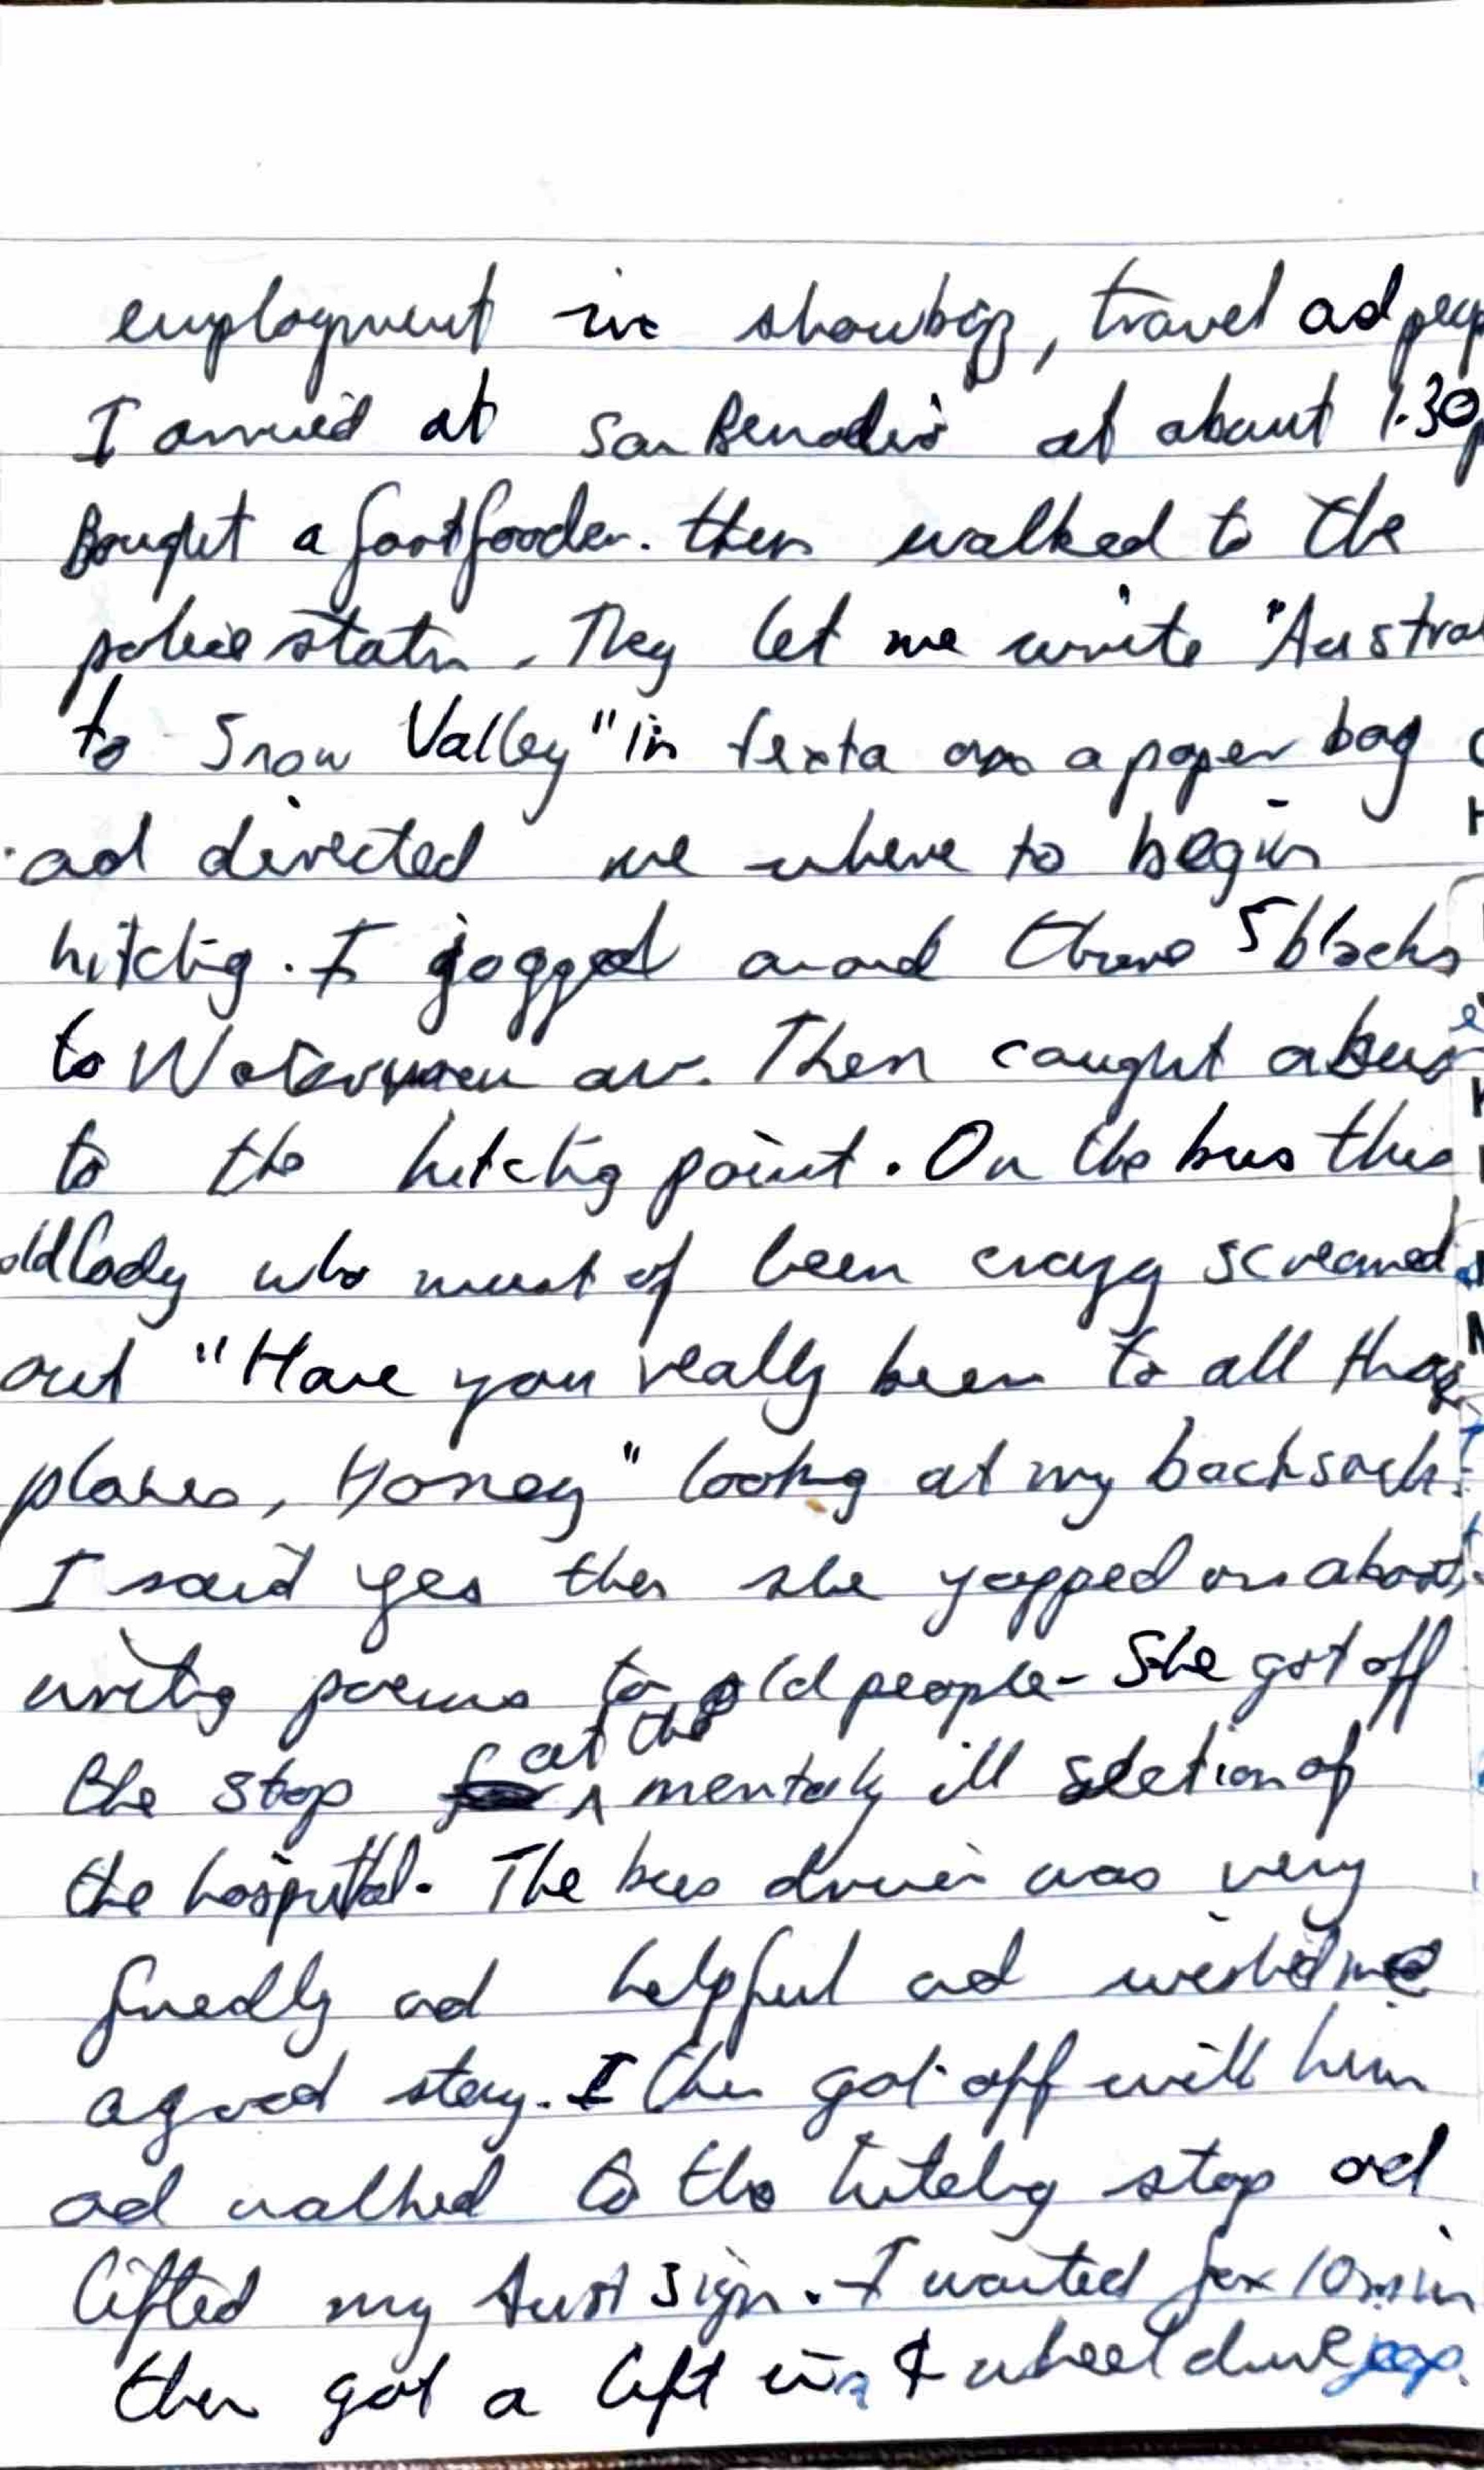 employment in showbiz, travel ad
I arrived at San Benadino at about 1.30
Bought a foot fooder. then walked to the
police statn. They let me write "Austra
to Snow Valley" in texta on a paper bag
ad directed me where to begin
hitchig. I jogged around three 5 blocks
to Waterman av. Then caught a bus
to the hitchig point. On the bus this
old lady who must of been crazy screamed
out "Have you really been to all those
places, Honey" lookig at my backsack.
I said yes then she yapped on about
writig poems to old people. She got off
the stop at the mentaly ill section of
the hospital. The bus driver was very
friedly ad helpful ad wished me
a good stay. I then got off with him
ad walked to the hitchig stop ad
lifted my Aust sign. I waited for 10 min
then got a lift in a 4 wheel drive jeep.